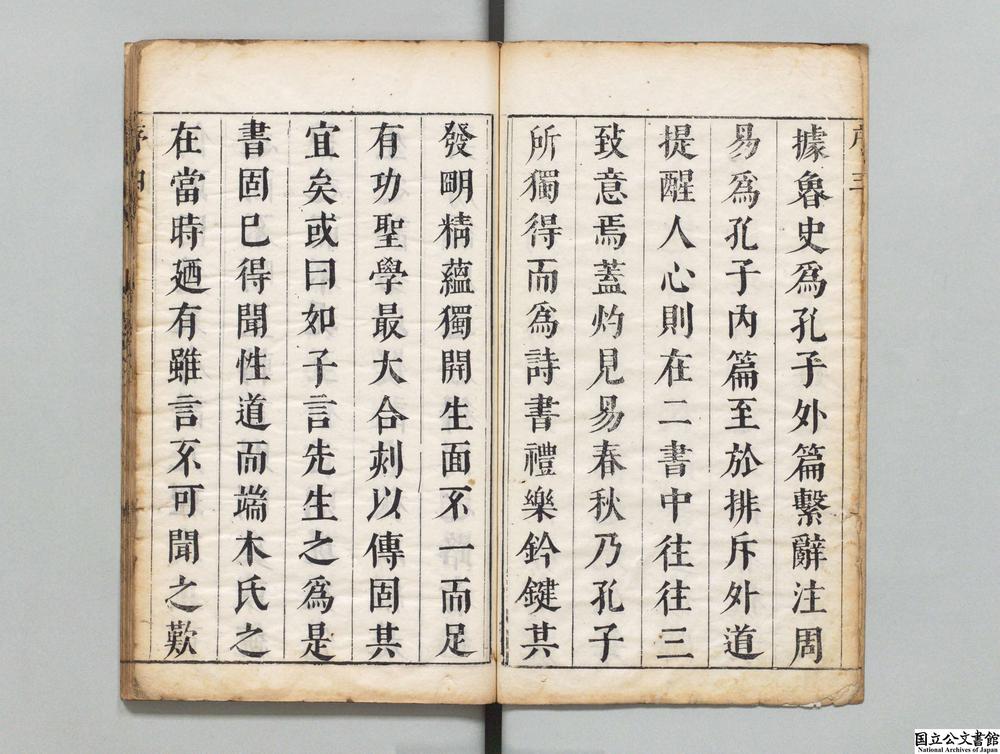 序三
據魯史爲孔子外篇繫辭注周
易爲孔子內篇至於排斥外道
提醒人心則在二書中往往三
致意焉蓋灼見易春秋乃孔子
所獨得而爲詩書禮樂鈐鍵其
發朙精蘊獨開生面不一而足
有功聖學最大合刻以傳固其
宜矣或曰如子言先生之爲是
書固已得聞性道而端木氏之
在當時廼有雖言不可聞之歎
序四
国立公文書館
National Archives of Japan